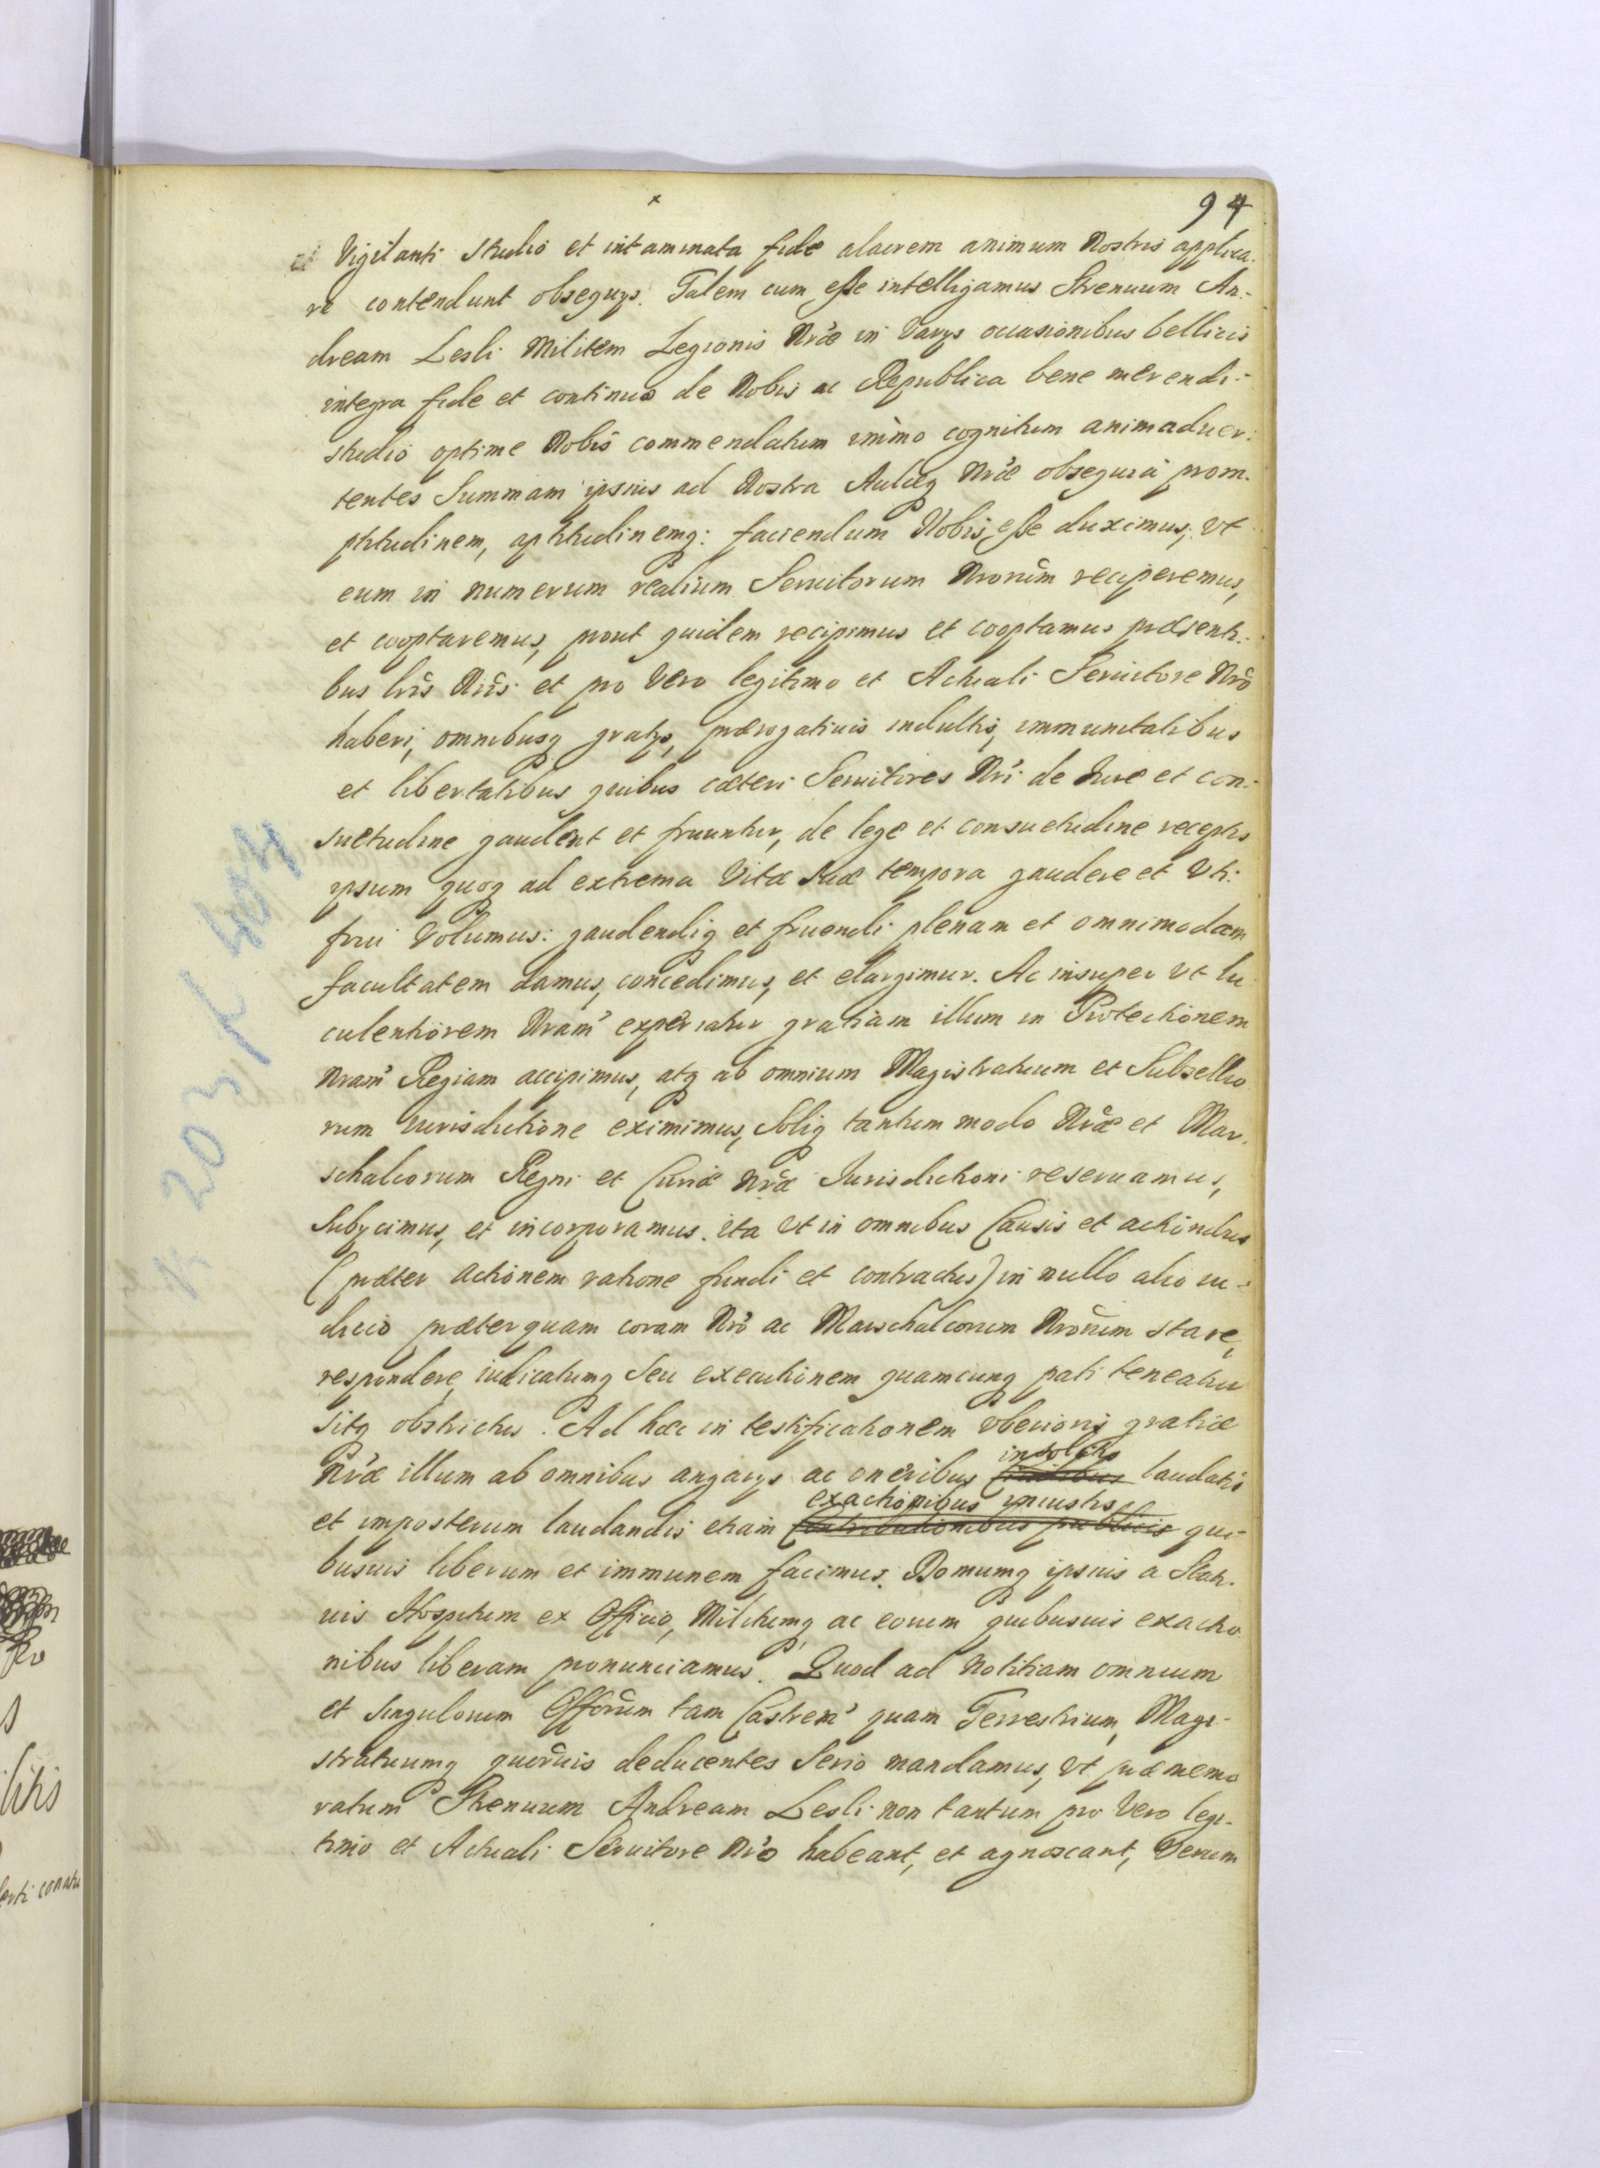 94
et Vigilanti studio et intaminata fide alacrem animum Nostris applica-
re contendunt obsequys. Talem cum esse intelligamus Strenuum An-
dream Lesli Militem Legionis Nrae in varys occasionibus bellicis
integra fide et continuo de Nobis ac Republica bene merendi
studio optime Nobis commendatum immo cognitum animaduer-
tentes Summam ipsius ad Nostra Aulaeq Nrae obsequia prom-
ptitudinem, aptitudinemq: faciendum Nobis esse duximus, Vt
eum in numerum realium Seruitorum Nrorum reciperemus,
et cooptaremus, prout quidem recipimus et cooptamus praesenti-
bus lris Nris et pro Vero legitimo et Actuali Seruitore Nro
haberi, omnibusq gratys, praerogatiuis indultis, immunitatibus
et libertatibus quibus caeteri Seruitores Nri de Iure et con-
suetudine gaudent et fruuntur, de lege et consuetudine receptis
ipsum quoq ad extrema Vitae suae tempora gaudere et Vti
frui Volumus: gaudendiq et fruendi plenam et omnimodam
facultatem damus, concedimus, et elargimur. Ac insuper vt lu
culentiorem Nram experiatur gratiam illum in Protectionem
Nram Regiam accipimus, atq ab omnium Magistratuum et Subsellio
rum iurisdictione eximimus, Soliq tantum modo Nrae et Mar-
schalcorum Regni et Curiae Nrae Iurisdictioni reseruamus,
Subycimus, et incorporamus. ita Vt in omnibus Causis et actionibus
(praeter actionem ratione fundi et contractus) in nullo alio iu-
dicio praeterquam coram Nro ac Marschalcorum Nrorum stare,
respondere, iudicatumq Seu executionem quamcunq pati teneatur
sitq obstrictus. Ad haec in testificationem vberioris gratiae
insolitis
Nrae illum ab omnibus angarys ac oneribus laudatis
exactionibus iniustis
et imposterum laudandis etiam Contributionibus publicis qui-
busuis liberum et immunem facimus. Domumq ipsius a Stati-
uis Hospitum ex Officio, Militumq ac eorum quibusuis exactio
nibus liberam pronunciamus. Quod ad Notitiam omnium
et singulorum Offorum tam Castren quam Terrestrium, Magi-
stratuumq quoruis deducentes Serio mandamus, vt praememo
ratum Strenuum Andream Lesli non tantum pro Vero legi-
timo et Actuali Seruitore Nro habeant, et agnoscant, Verum